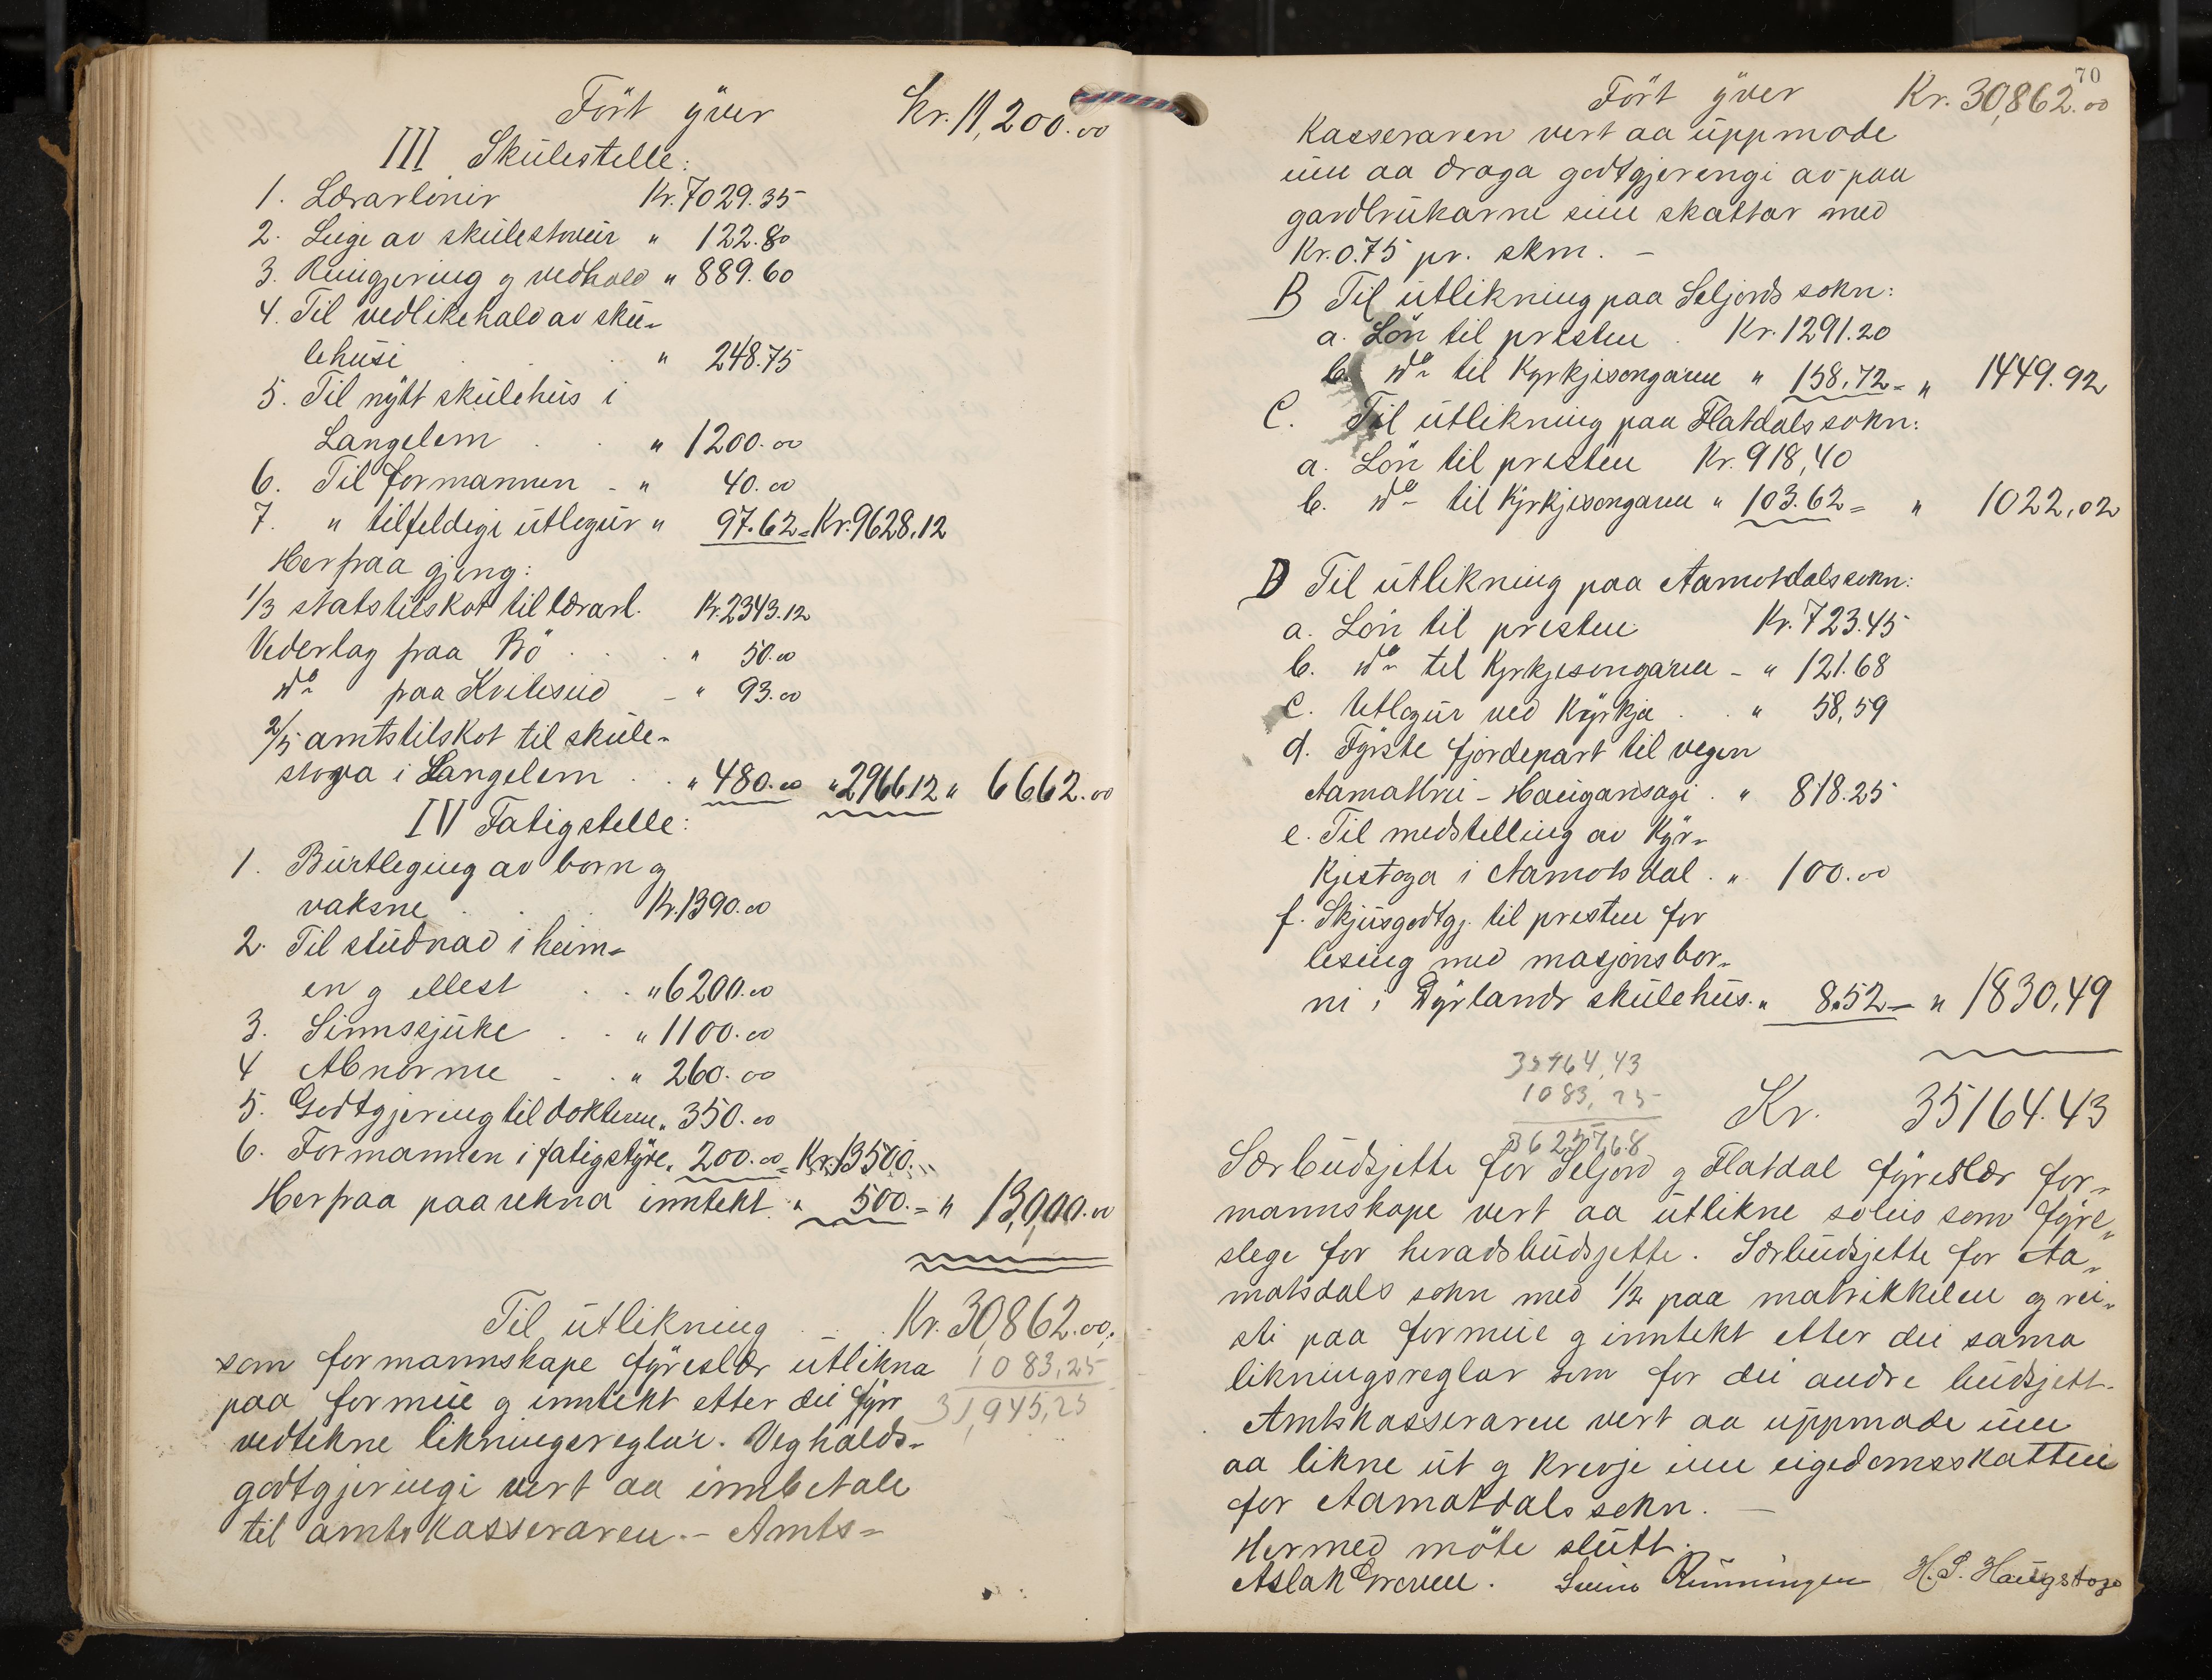 Fört yver Kr. 11,200.00
III Skulestelle:
1. Lærarlönir Kr. 7029.35
2. Leige av skulestoveir " 122.80
3. Reingjering og vedhald " 889.60
4. Til vedlikehald av sku-
lehusi " 248.75
5. Til nytt skulehus i
Langelem " 1200.00
6. Til formannen - " 40.00
7. " tilfeldigi utlegur " 97.62 = Kr. 9628.12
Herpaa gjeng:
1/3 statstilskot til lærarl. Kr. 2343.12
Vederlag fraa Bö " 50.00
do fraa Kviteseid - " 93.00
2/5 amtstilskot til skule-
stoga i Langelem . . " 480.00 " 2966.12 " 6662.00
IV Fatigstelle:
1. Burtleging av born og
vaksne Kr. 1390.00
2. Til studnad i heim-
en og ellest . . " 6200.00
3. Sinnssjuke . . " 1100.00
4 Abnorme - . " 260.00
5. Godtgjering til dokteren " 350.00
6. Formannen i fatigstyre " 200.00 = Kr. 13500.
Herpaa paarekna inntekt " 500.= " 13,000.00
Til utlikning Kr. 30,862.00
som formannskape fyreslær utlikna 1083,25
paa formue og inntekt etter dei fyrr 31,945,25
vedtekne likningsreglar. Veghalds-
godtgjeringi vert aa innbetale
til amtskasseraren. - Amts-
70
Fört yver Kr. 30,862.00
kasseraren vert aa uppmode
um aa draga godtgjerengi av paa
gardbrukarne sine skattar med
Kr. 0.75 pr. skm. -
B Til utlikning paa Seljords sokn:
a. Lön til presten . Kr. 1291.20
b. do til Kyrkjesongaren " 158,72 = " 1449.92
C. Til utlikning paa Flatdals sokn:
a. Lön til presten Kr. 918,40
b. do til Kyrkjesongaren " 103.62 = " 1022,02
D Til utlikning paa Aamotdals sokn:
a. Lön til presten Kr. 723.45
b. do til Kyrkjesongaren - " 121.68
c. Utlegur ved Kyrkja . . " 58,59
d. Fyrste fjordepart til vegen
- Haugansagi . " 818.25
e. Til medstelling av Kyr-
kjestoga i Aamotsdal . " 100.00
f. Skjusgodtgj. til presten for
lesing med masjonsbor-
ni i Dyrlands skulehus. " 8.52 - " 1830,49
35164,43
1083,25
36247,68
Kr. 35164.43
Særbudsjette for Seljord og Flatdal fyreslær for-
mannskape vert aa utlikne soleis som fyre-
slege for heradsbudsjette. Særbudsjette for Aa-
motsdals sokn med 1/2 paa matrikkelen og rei-
sti paa formue og inntekt etter dei sama
likningsreglar som for dei andre budsjett.
Amtskasseraren vert aa uppmode um
aa likne ut og krevje inn eigedomsskatten
for Aamotdals sokn. -
Hermed möte slutt.
Aslak Groven. Svein Runningen H. S. Haugstoga